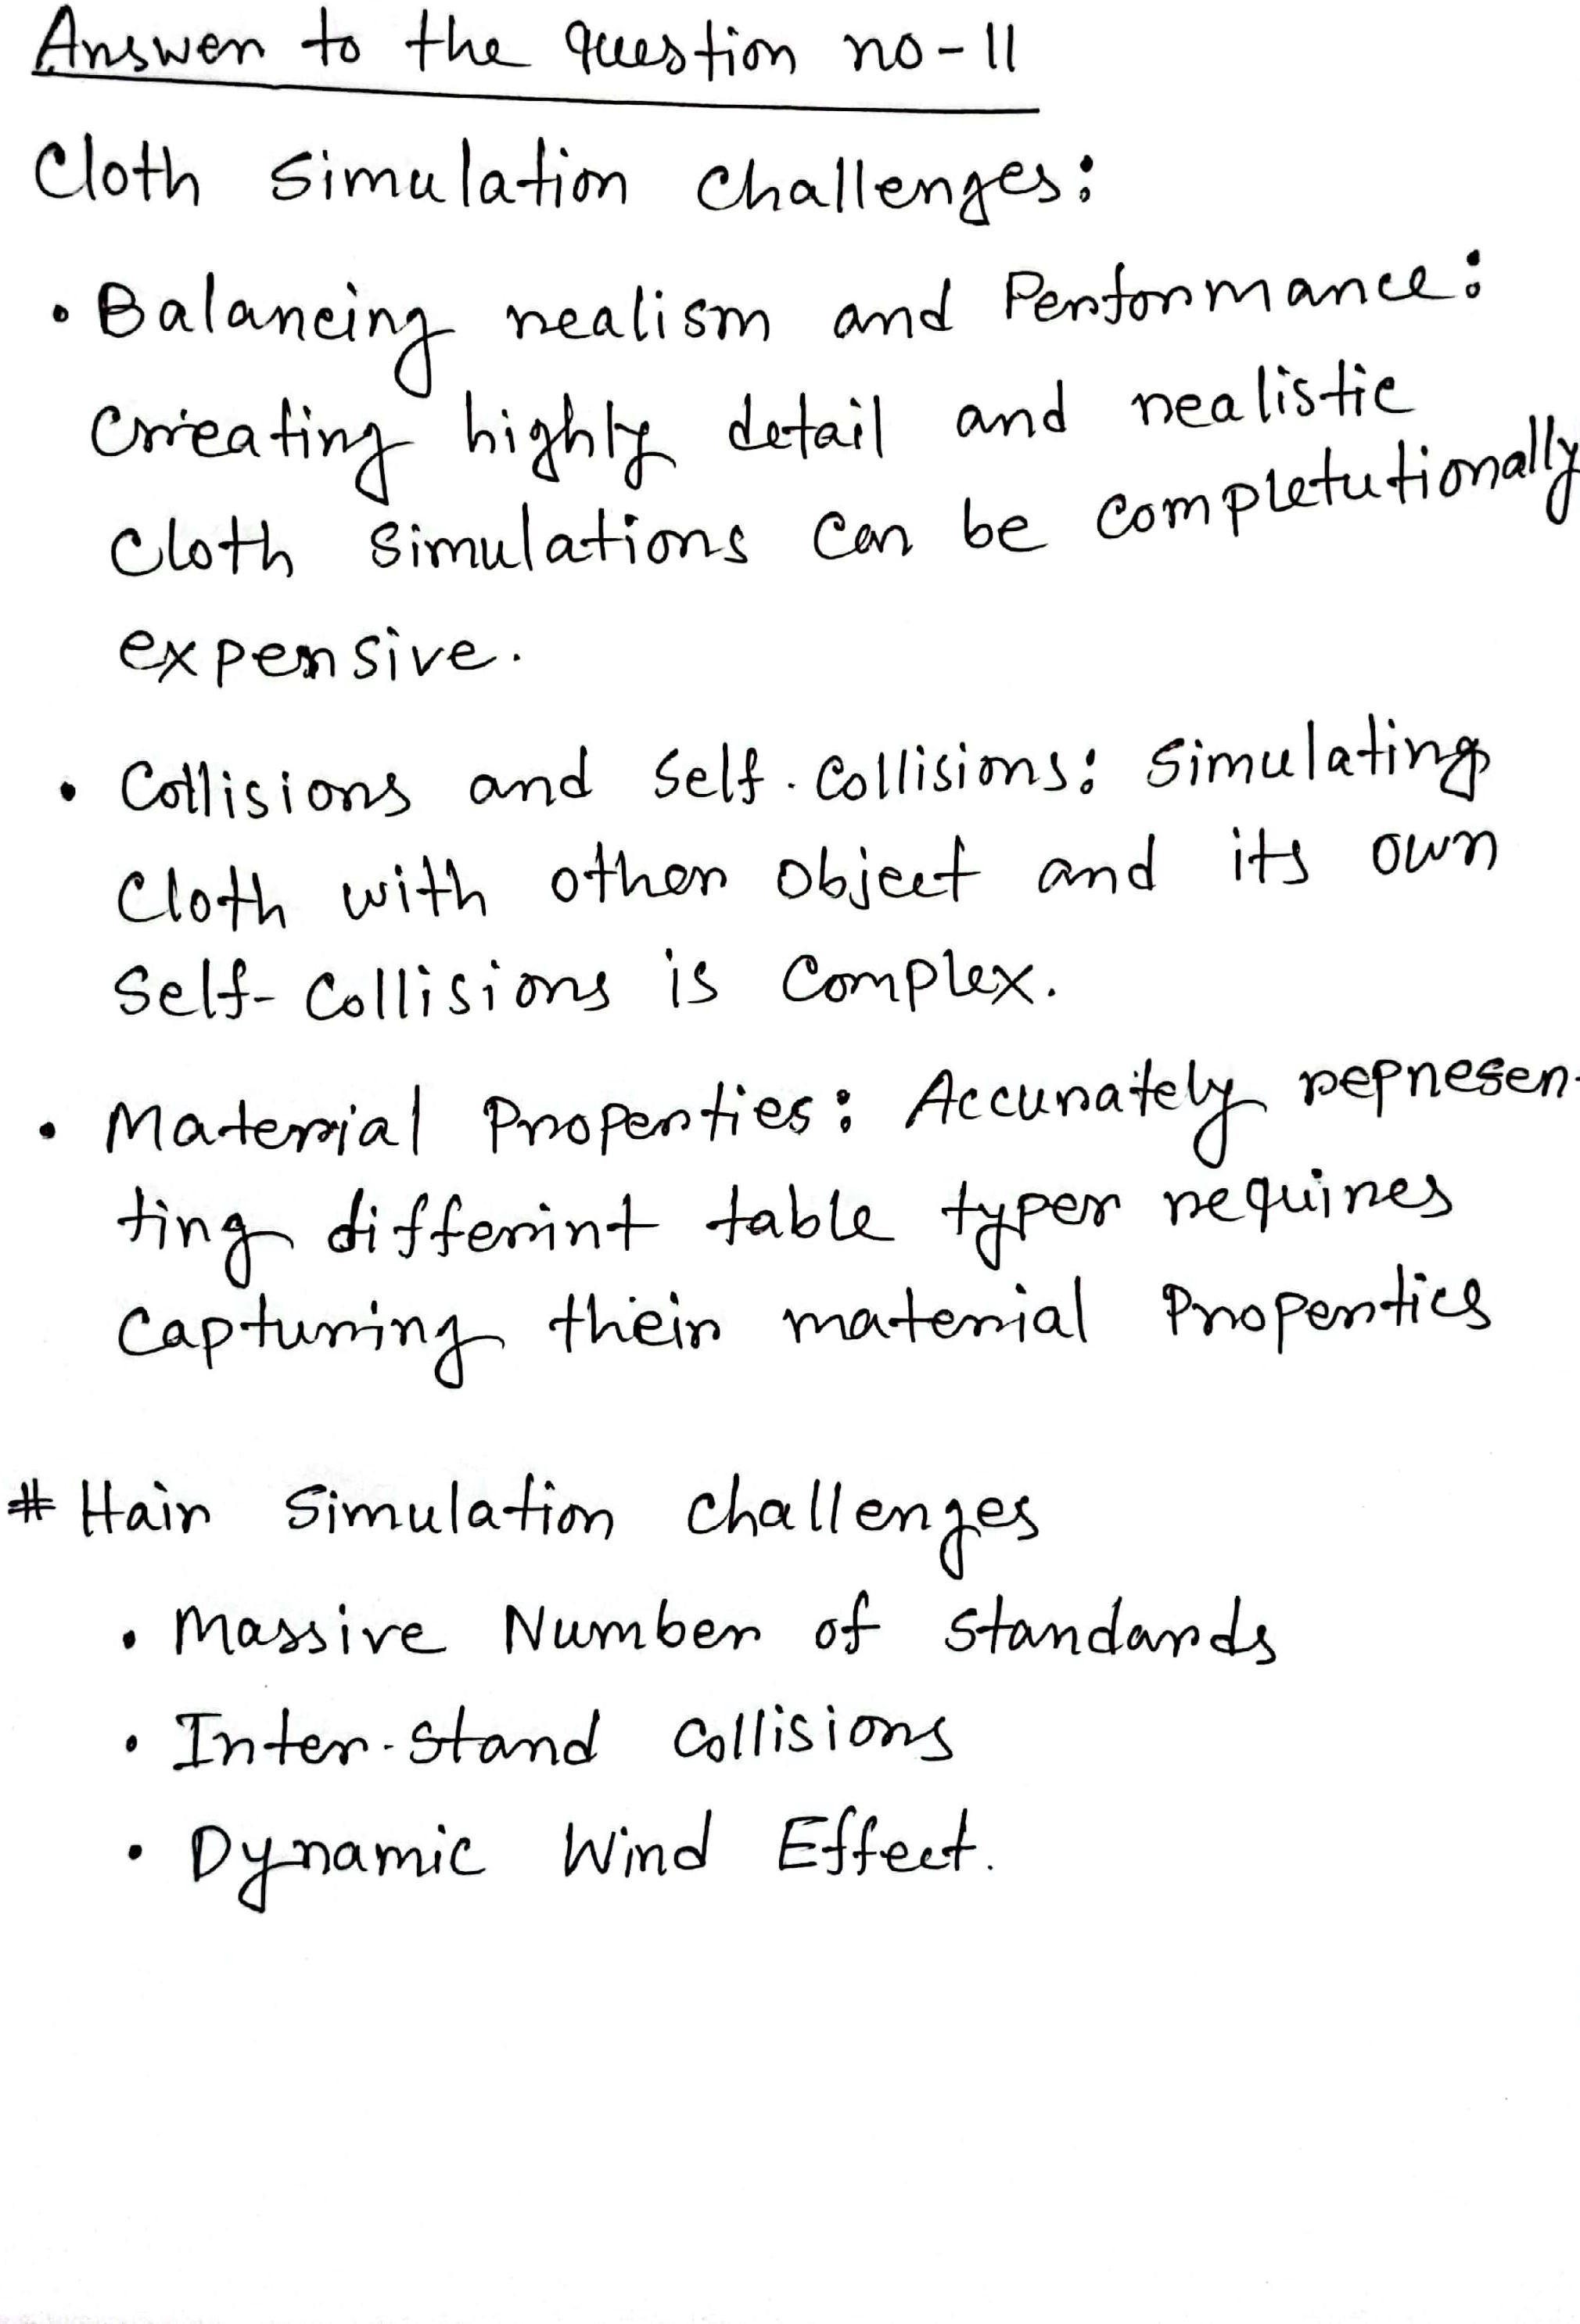 Answer to the question no-11
Cloth simulation challenges:
• Balancing realism and Performance:
Creating highly detail and realistic
cloth simulations can be completutionally
expensive.
• Collisions and self-collisions: simulating
cloth with other object and its own
self-collisions is complex.
• Material Properties: Accurately represen-
ting differint table types requires
capturing their material Properties
# Hair simulation challenges
• Massive Number of standards
• Inter-stand collisions
• Dynamic Wind Effect.